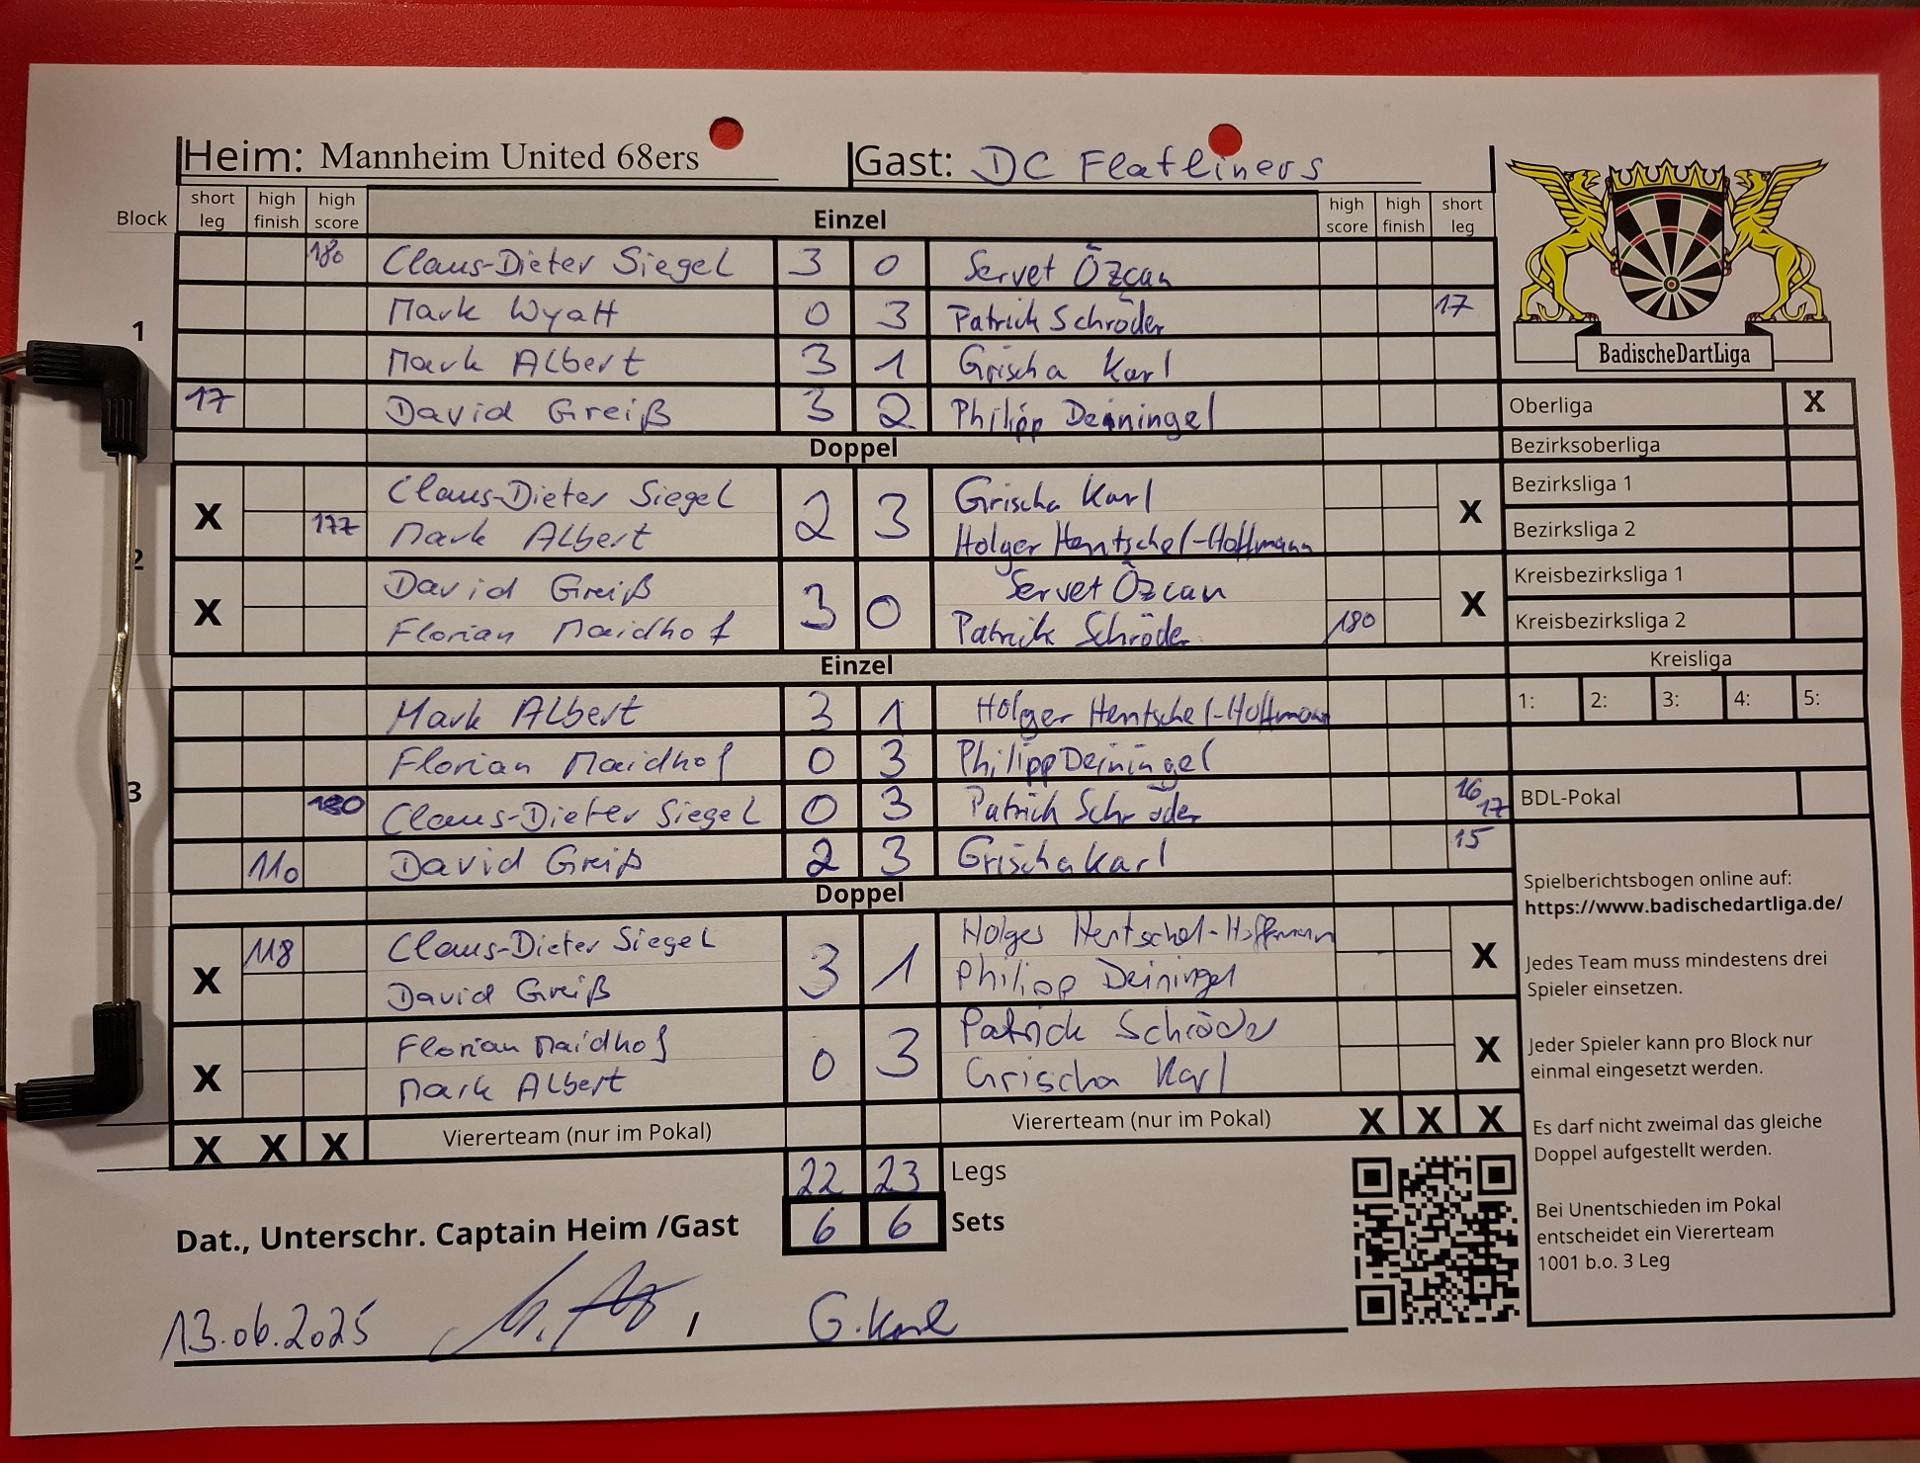 Heim: Mannheim United 68ers Gast: DC Flatliners
Block short leg high finish high score Einzel high score high finish short leg
180 Claus-Dieter Siegel 3 0 Servet Özcan
1 Mark Wyatt 0 3 Patrick Schröder 17
Mark Albert 3 1 Grischa Karl
17 David Greiß 3 2 Philipp Deiningel
Doppel
X Claus-Dieter Siegel 2 3 Grischa Karl X
177 Mark Albert Holger Hentschel-Hoffmann
2
X David Greiß 3 0 Servet Özcan X
Florian Maidhof Patrik Schröder 180
Einzel
Mark Albert 3 1 Holger Hentschel-Hoffmann
Florian Maidhof 0 3 Philipp Deiningel
3 180 Claus-Dieter Siegel 0 3 Patrick Schröder 16 17
110 David Greiß 2 3 Grischa Karl 15
Doppel
X 118 Claus-Dieter Siegel 3 1 Holger Hentschel-Hoffmann X
David Greiß Philipp Deiningel
X Florian Maidhof 0 3 Patrick Schröder X
Mark Albert Grischa Karl
X X X Viererteam (nur im Pokal) Viererteam (nur im Pokal) X X X
22 23 Legs
Dat., Unterschr. Captain Heim /Gast 6 6 Sets
13.06.2025 / G. Karl
BadischeDartLiga
Oberliga X
Bezirksoberliga
Bezirksliga 1
Bezirksliga 2
Kreisbezirksliga 1
Kreisbezirksliga 2
Kreisliga
1: 2: 3: 4: 5:
BDL-Pokal
Spielberichtsbogen online auf:
https://www.badischedartliga.de/
Jedes Team muss mindestens drei
Spieler einsetzen.
Jeder Spieler kann pro Block nur
einmal eingesetzt werden.
Es darf nicht zweimal das gleiche
Doppel aufgestellt werden.
Bei Unentschieden im Pokal
entscheidet ein Viererteam
1001 b.o. 3 Leg